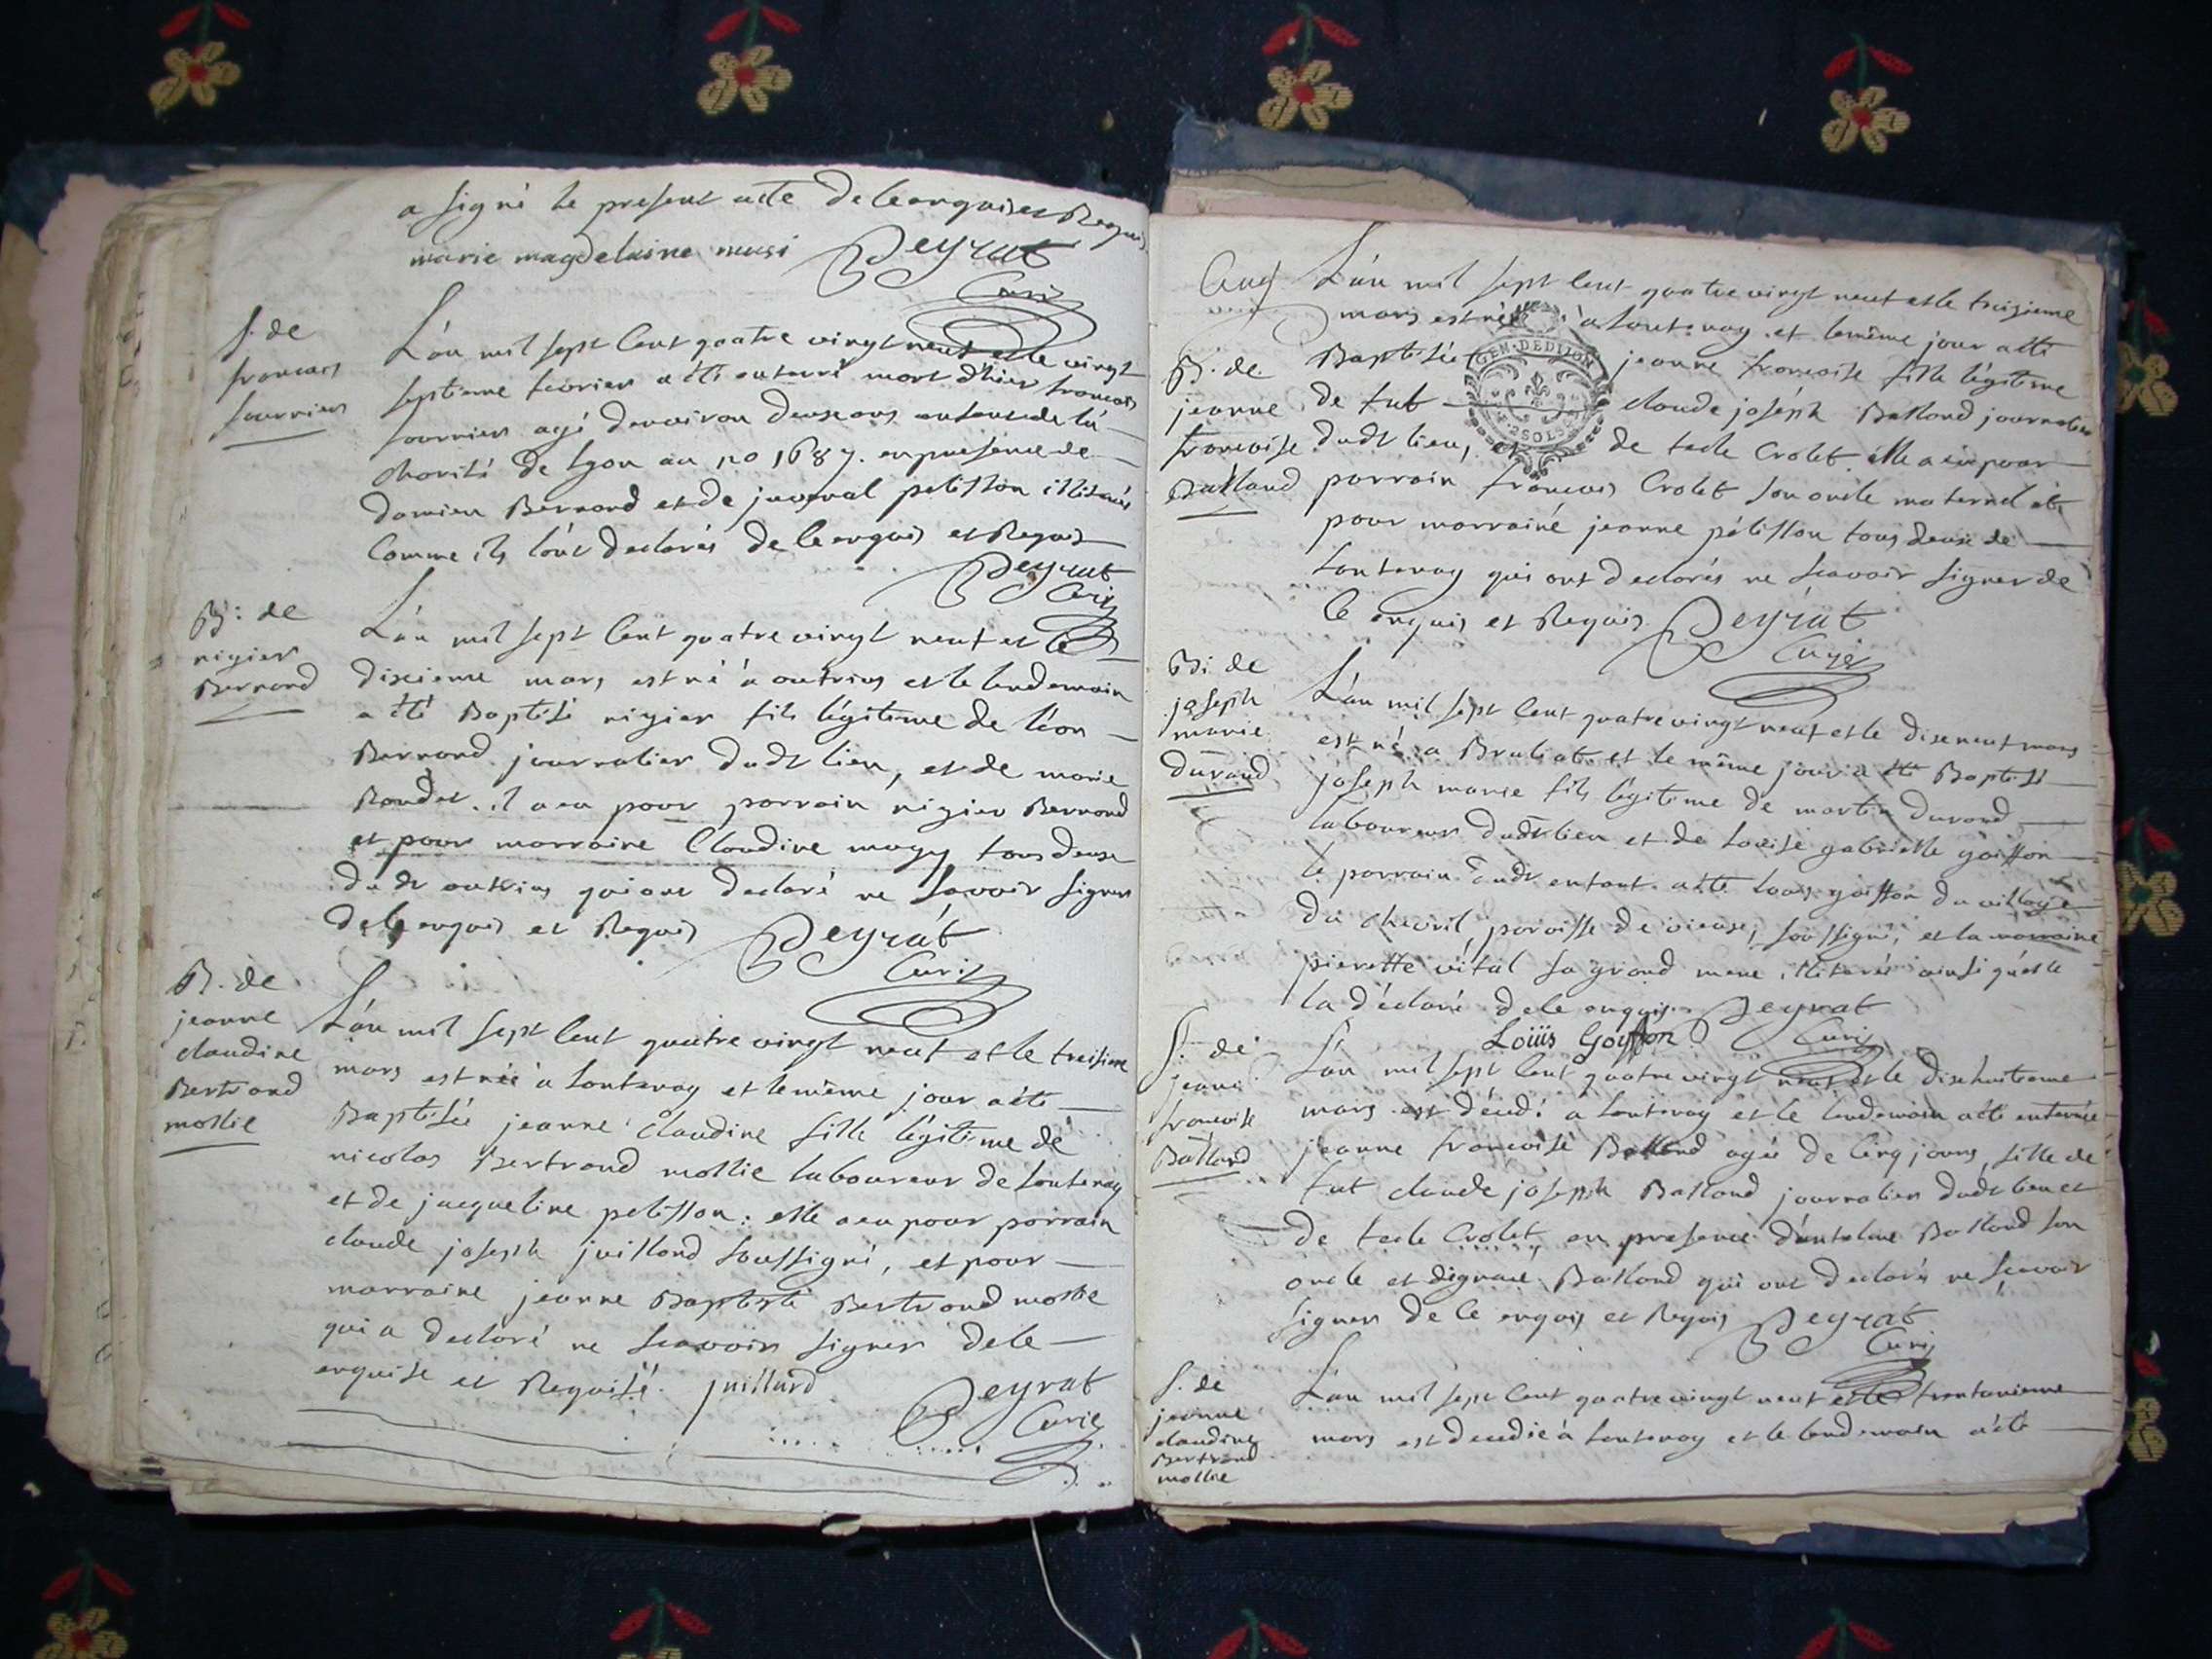 a signé le present acte de ce enquis et Requis
marie magdelaine musi Peyrat
Curé
S. de
francois
fournier
L'an mil sept Cent quatre vingt neuf et le vingt
septieme fevrier a été enterré mort d'hier francois
fournier agé d'environ deuse ans enfant de la
charité de lyon au no 1687. en presence de
damien Bernard et de juvenal pelisson illiterés
Comme ils l'ont declarés de ce enquis et Requis
Peyrat
Curé
B: de
nizier
Bernard
L'an mil sept Cent quatre vingt neuf et le
dixieme mars est né à outrias et le lendemain
a été Baptisé nizier fils légitime de léon
Bernard journalier dudt lieu, et de marie
Roudet. il a eu pour parrain nizier Bernard
et pour marraine Claudine magy tous deuse
dudt outrias qui ont declaré ne scavoir signer
de ce enquis et Requis Peyrat
Curé
B. de
jeanne
claudine
Bertrand
mollie
L'an mil sept Cent quatre vingt neuf et le treisieme
mars est née a lantenay et le même jour a été
Baptisée jeanne claudine fille légitime de
nicolas Bertrand mollie laboureur de lantenay
et de jacqueline pelisson: elle a eu pour parrain
claude joseph juilland soussigné, et pour
marraine jeanne Baptiste Bertrand mollie
qui a declaré ne scavoir signer de ce
enquise et Requise. juilland Peyrat
Curé
L'an mil sept Cent quatre vingt neuf et le treisieme
mars est née à lantenay et le même jour a été
B. de
jeanne
francoise
Balland
Baptisée jeanne francoise fille légitime
GEN. DE DIJON
2 SOLS
de fut claude joséph Balland journalier
dudt lieu, et de tecle Crolet elle a eu pour
parrain francois Crolet son oncle maternel et
pour marraine jeanne pélisson tous deuse de
lantenay qui ont declarés ne scavoir signer de
ce enquis et Requis. Peyrat
Curé
B: de
joseph
marie
durand
L'an mil sept Cent quatre vingt neuf et le diseneuf mars
est né a Bruliat et le même jour a été Baptisé
joseph marie fils légitime de martin durand
laboureur dudt lieu et de louise gabrielle goiffon
le parrain dudt enfant a été louis goiffon du village
du chevril paroisse de vieuse, soussigné, et la marraine
pierrette vital sa grand mere illiterée ainsi qu'elle
la déclaré de ce enquise Peyrat
Louis Goiffon Curé
S. de
jeane
francoise
Balland
L'an mil sept Cent quatre vingt neuf et le disehuitieme
mars est décédé à lantenay et le lendemain a été enterrée
jeanne francoise Balland agée de cinq jours, fille de
fut claude joseph Balland journalier dudt lieu et
de tecle Crolet, en presence d'antelme Balland son
oncle et Balland qui ont declarés ne scavoir
signer de ce enquis et Requis Peyrat
Curé
S. de
jeanne
claudine
Bertrand
mollie
L'an mil sept Cent quatre vingt neuf et le trentunieme
mars est decedié à lantenay et le lendemain a été